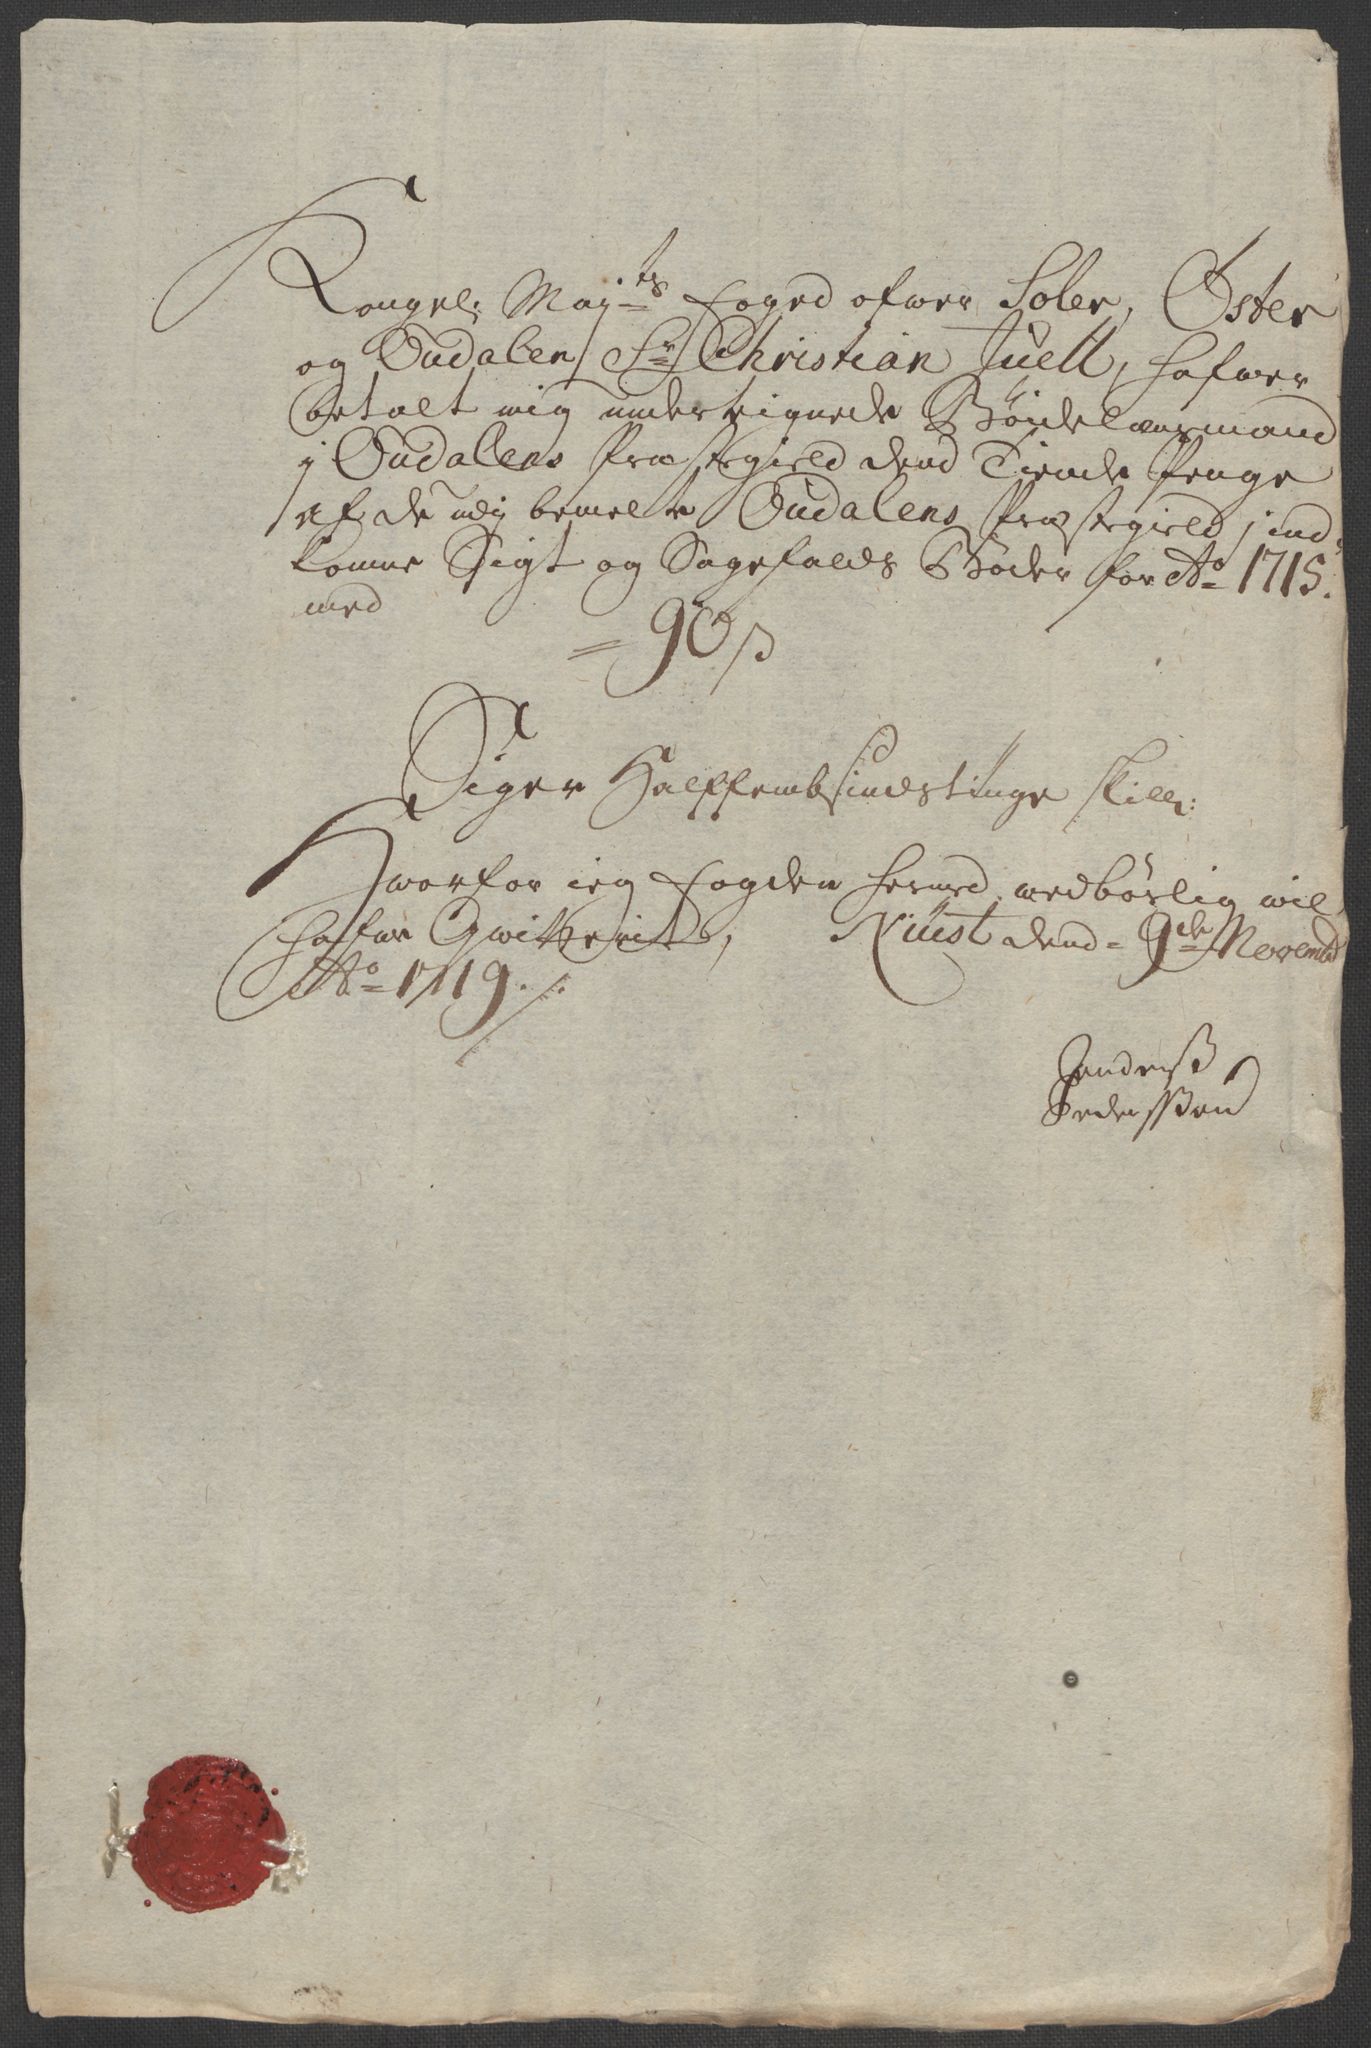 Kongel: May:ts Foged ofwer Soler, Øster
og Oudalen Sr Christian Juell, hafwer
betalt mig underteignede Böide lænsmand
j Oudalens Præstegield dend Tiende Penge
af de udj bemelte Oudalens Præstegield, ind-
komne Sigt og Sagefalds Bøder for Ao 1715.
med
= 90 ß
Siger Halffembsindstiuge skill:
Hworfor ieg Fogden hermed wedbörlig wil
haffue Qwitterit, Niust dend = 9de Novemb
Ao = 1719.
Andreß
Pederßen